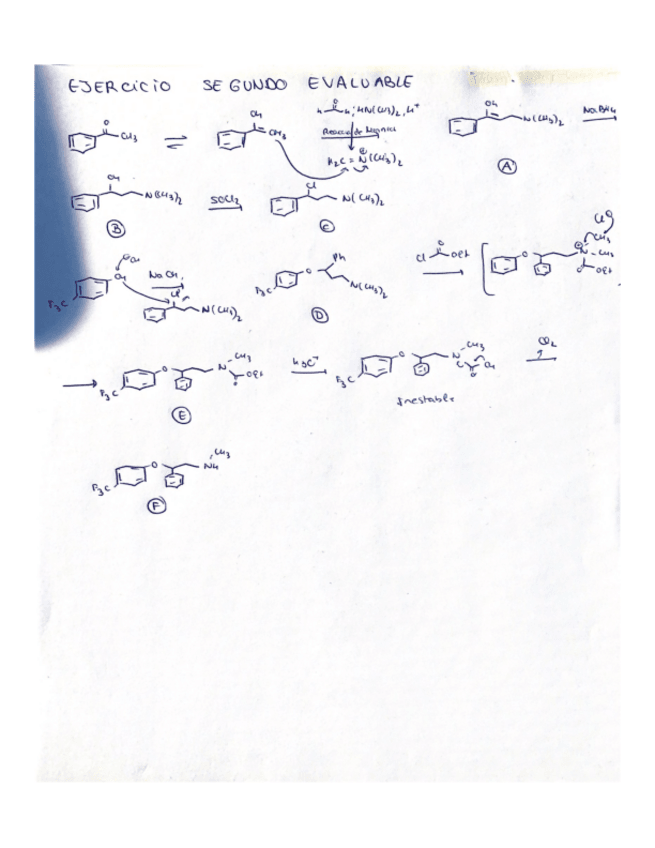 EJERCICIO SEGUNDO EVALUABLE
O
CH3
OH
CH2
H H ; HN(CH3)2, H+
Reacción de Mannich
H2C = N(CH3)2
⊕
OH
N(CH3)2
NaBH4
A
OH
N(CH3)2
SOCl2
Cl
N(CH3)2
B
C
F3C
OH
NaOH
Cl
N(CH3)2
F3C
O
Ph
N(CH3)2
D
Cl
O
OEt
O
N
CH3
CH3
O
OEt
Cl
F3C
O
N
CH3
O
OEt
E
H3O+
F3C
O
N
CH3
O
OH
Inestable
CO2
F3C
O
NH
CH3
F